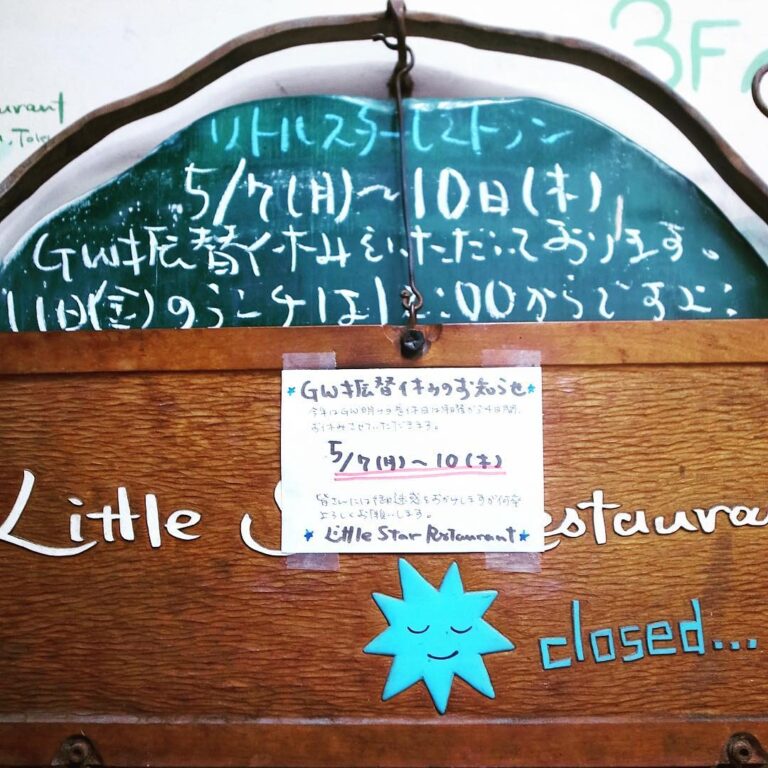 3F
urant
リトルスターレストラン
5/7(月)〜10日(木)
GW振替休みをいただいております。
11日(金)のランチは11:00からですよ:
GW振替休みのお知らせ
お休みさせていただきます。
5/7(月)〜10(木)
皆さんには御迷惑をおかけしますが何卒
よろしくお願いします。
Little Star Restaurant
Little S estaura
closed...